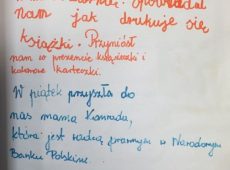 opowiadał
nam jak drukuje się
książki. Przyniósł
nam w prezencie książeczki i
kolorowe karteczki.
W piątek przyszła do
nas mama Konrada,
która jest radcą prawnym w Narodowym
Banku Polskim.